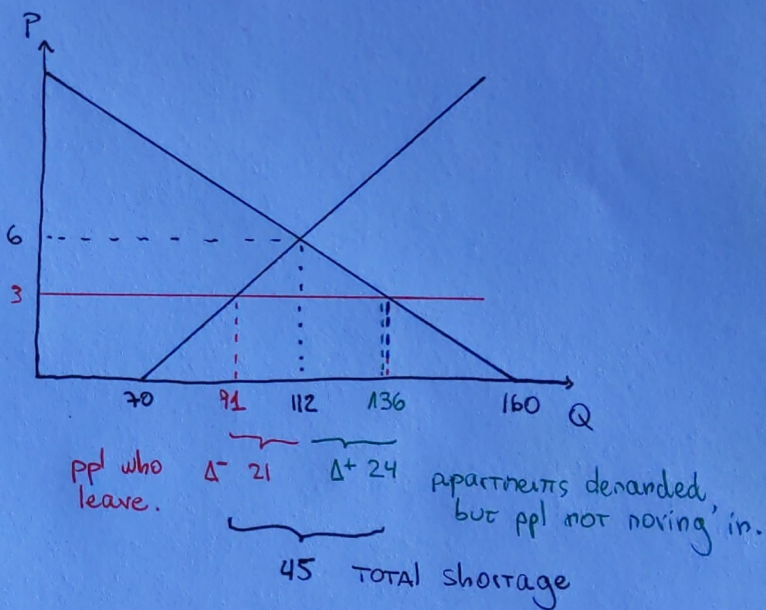 P
6
3
70 91 112 136 160 Q
ppl who Δ- 21 Δ+ 24 apartments demanded,
leave. but ppl not moving in.
45 TOTAL shortage